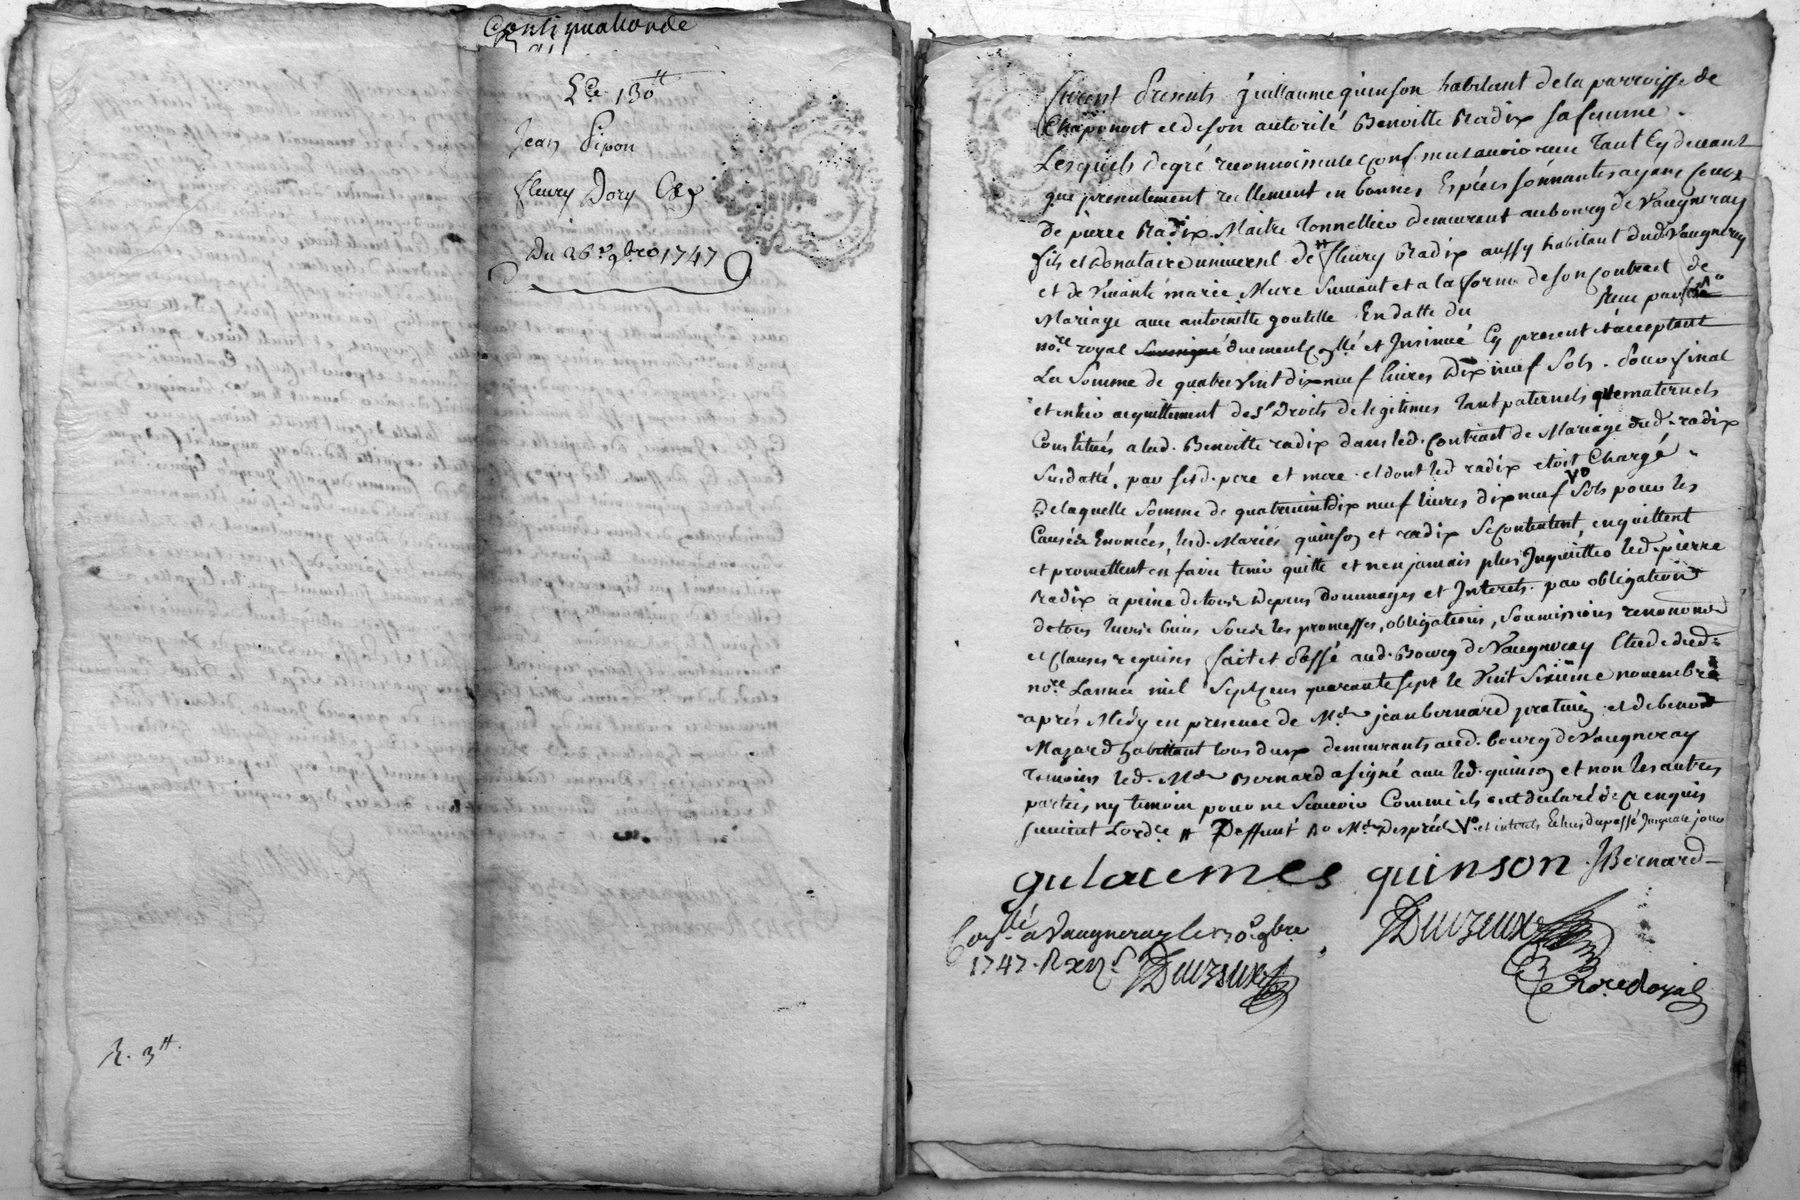 Constitution de
Lre 130tt
Jean Pipon
fleury Dory
Du 26e 9bre 1747
R. 3tt.
furent Presents guillaume quinson habitant de la parroisse de
Chaponost et de son autorité Benoitte Radix sa femme.
Lesquels de gré reconnoissent et Confessent avoir reçu Tant Cy devant
que presentement reellement en bonnes Espéces sonnantes ayant Cours
De pierre Radix Maitre Tonnellier demeurant au bourg de Vaugneray
fils et donataire universel de # fleury Radix aussy habitant dud. Vaugneray
et de Vivante marie Mure Suivant et a la forme de son contract de
Mariage avec antoinette goutelle En datte du reçu par
nore. royal duement Conllé et Insinué Cy present & acceptant
La Somme de quatre vint dix neuf livres Dix neuf Sols. pour final
et entier acquittement de Ses Droits de legitimes Tant paternels que maternels
Constitués a lad. Benoitte radix dans led. Contract de Mariage dud. radix
Susdatté, par sesd. pere et mere. et dont led radix etoit Chargé
De laquelle Somme de quatre vint dix neuf livres dix neuf Vo Sols pour les
Causes Enoncées, lesd. Mariés quinson et radix Se Contentent, en quittent
et promettent en faire tenir quitte et n'en jamais plus Inquietter led. pierre
Radix a peine de tous Depens Dommages et Interets. par obligation
de tous leurs biens Sous les promesses, obligations, Soumissions renonons
et Clauses requises fait et Passé aud. Bourg de Vaugneray Etude dud.
nore. Lannée mil Sept Cens quarante sept le Vint Sixieme novembre
aprés Midy en presence de Me jean bernard praticien et de benoit
Mazard habittant tous deux demeurants aud. bourg de Vaugneray
Temoins led. Me Bernard a signé avec led. quinson et non les autres
parties ny temoin pour ne Scavoir Comme ils ont declaré de ce enquis
suivant Lordce # Deffunt Vo et interets Echus du passé Jusqua ce jour
gulaumes quinson JBernard
Conllé a Vaugneray le 30e 9bre
1747. Duvzeux
Duvzeux
Nore Royal